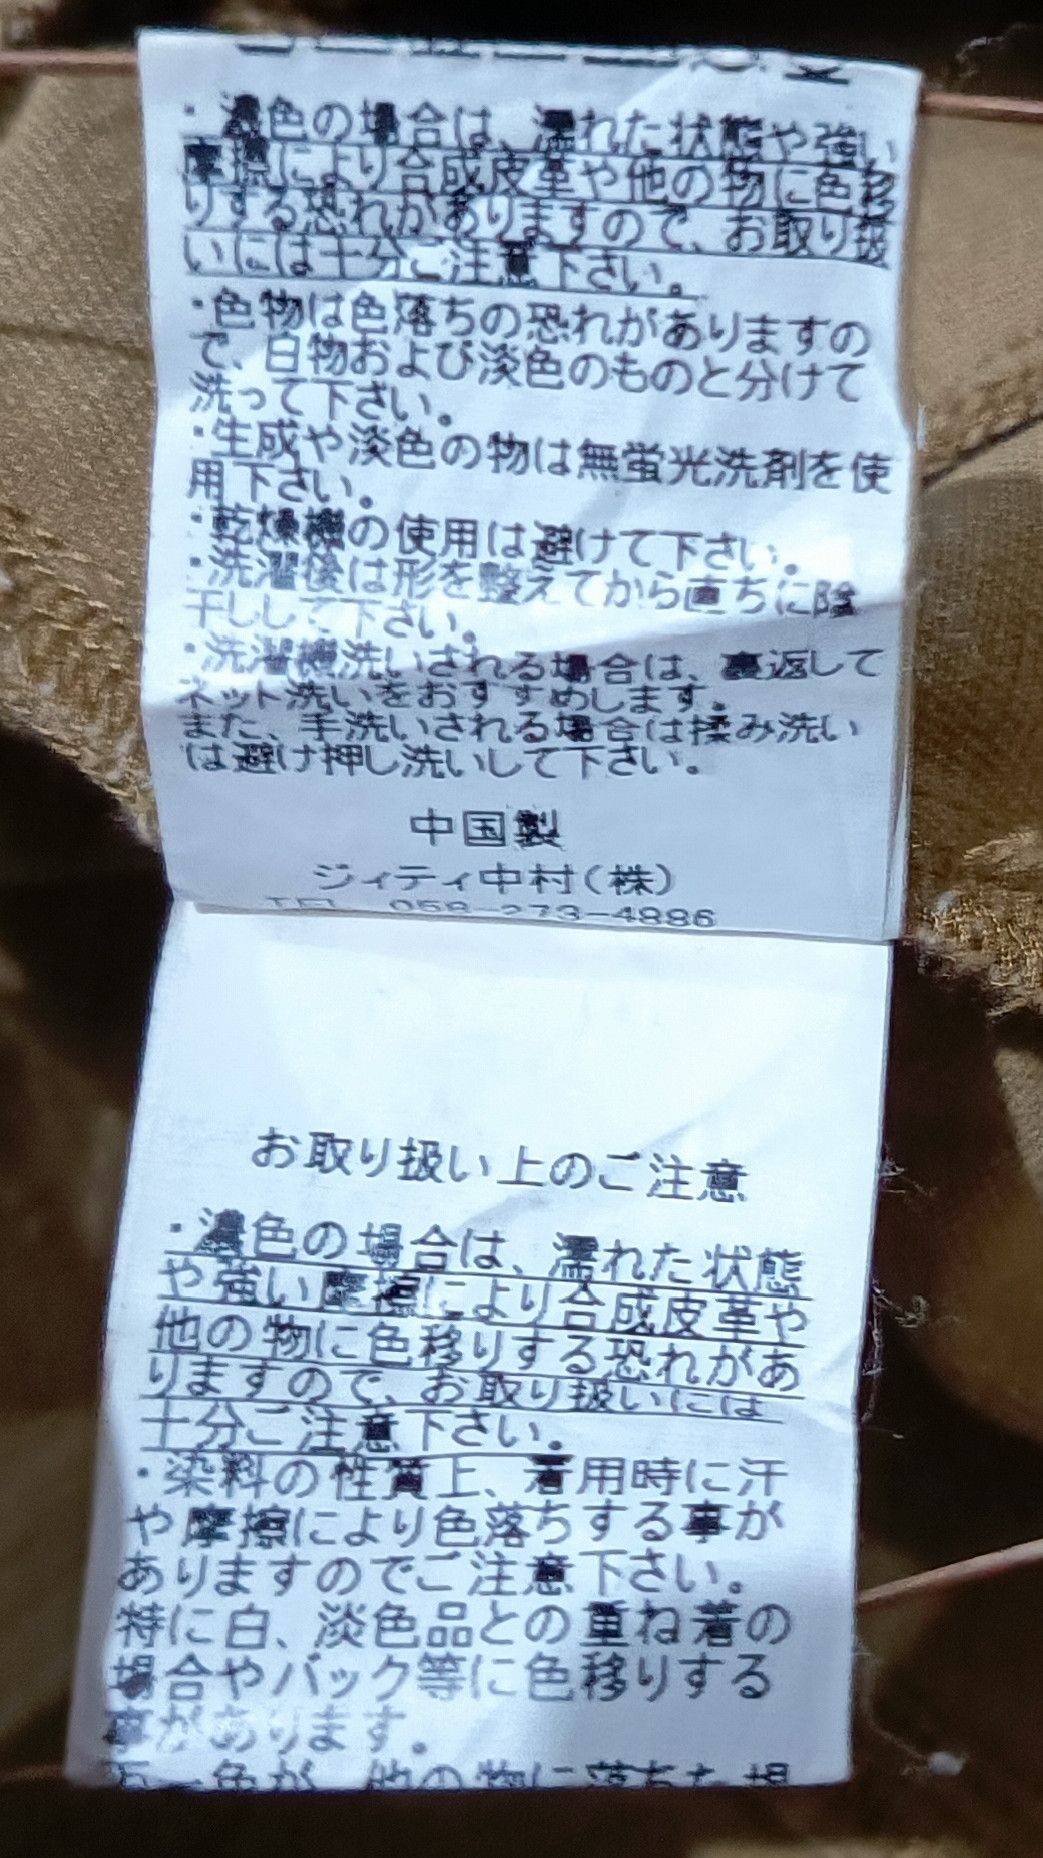 ・濃色の場合は、濡れた状態や強い
摩擦により合成皮革や他の物に色移
りする恐れがありますので、お取り扱
いには十分ご注意下さい。
・色物は色落ちの恐れがありますの
で、白物および淡色のものと分けて
洗って下さい。
・生成や淡色の物は無蛍光洗剤を使
用下さい。
・乾燥機の使用は避けて下さい。
・洗濯後は形を整えてから直ちに陰
干しして下さい。
・洗濯機洗いされる場合は、裏返して
ネット洗いをおすすめします。
また、手洗いされる場合は揉み洗い
は避け押し洗いして下さい。
中国製
ジィティ中村(株)
TEL 058-273-4886
お取り扱い上のご注意
・濃色の場合は、濡れた状態
や強い摩擦により合成皮革や
他の物に色移りする恐れがあ
りますので、お取り扱いには
十分ご注意下さい。
・染料の性質上、着用時に汗
や摩擦により色落ちする事が
ありますのでご注意下さい。
特に白、淡色品との重ね着の
場合やバック等に色移りする
事があります。
万一色が、他の物に落ちた場